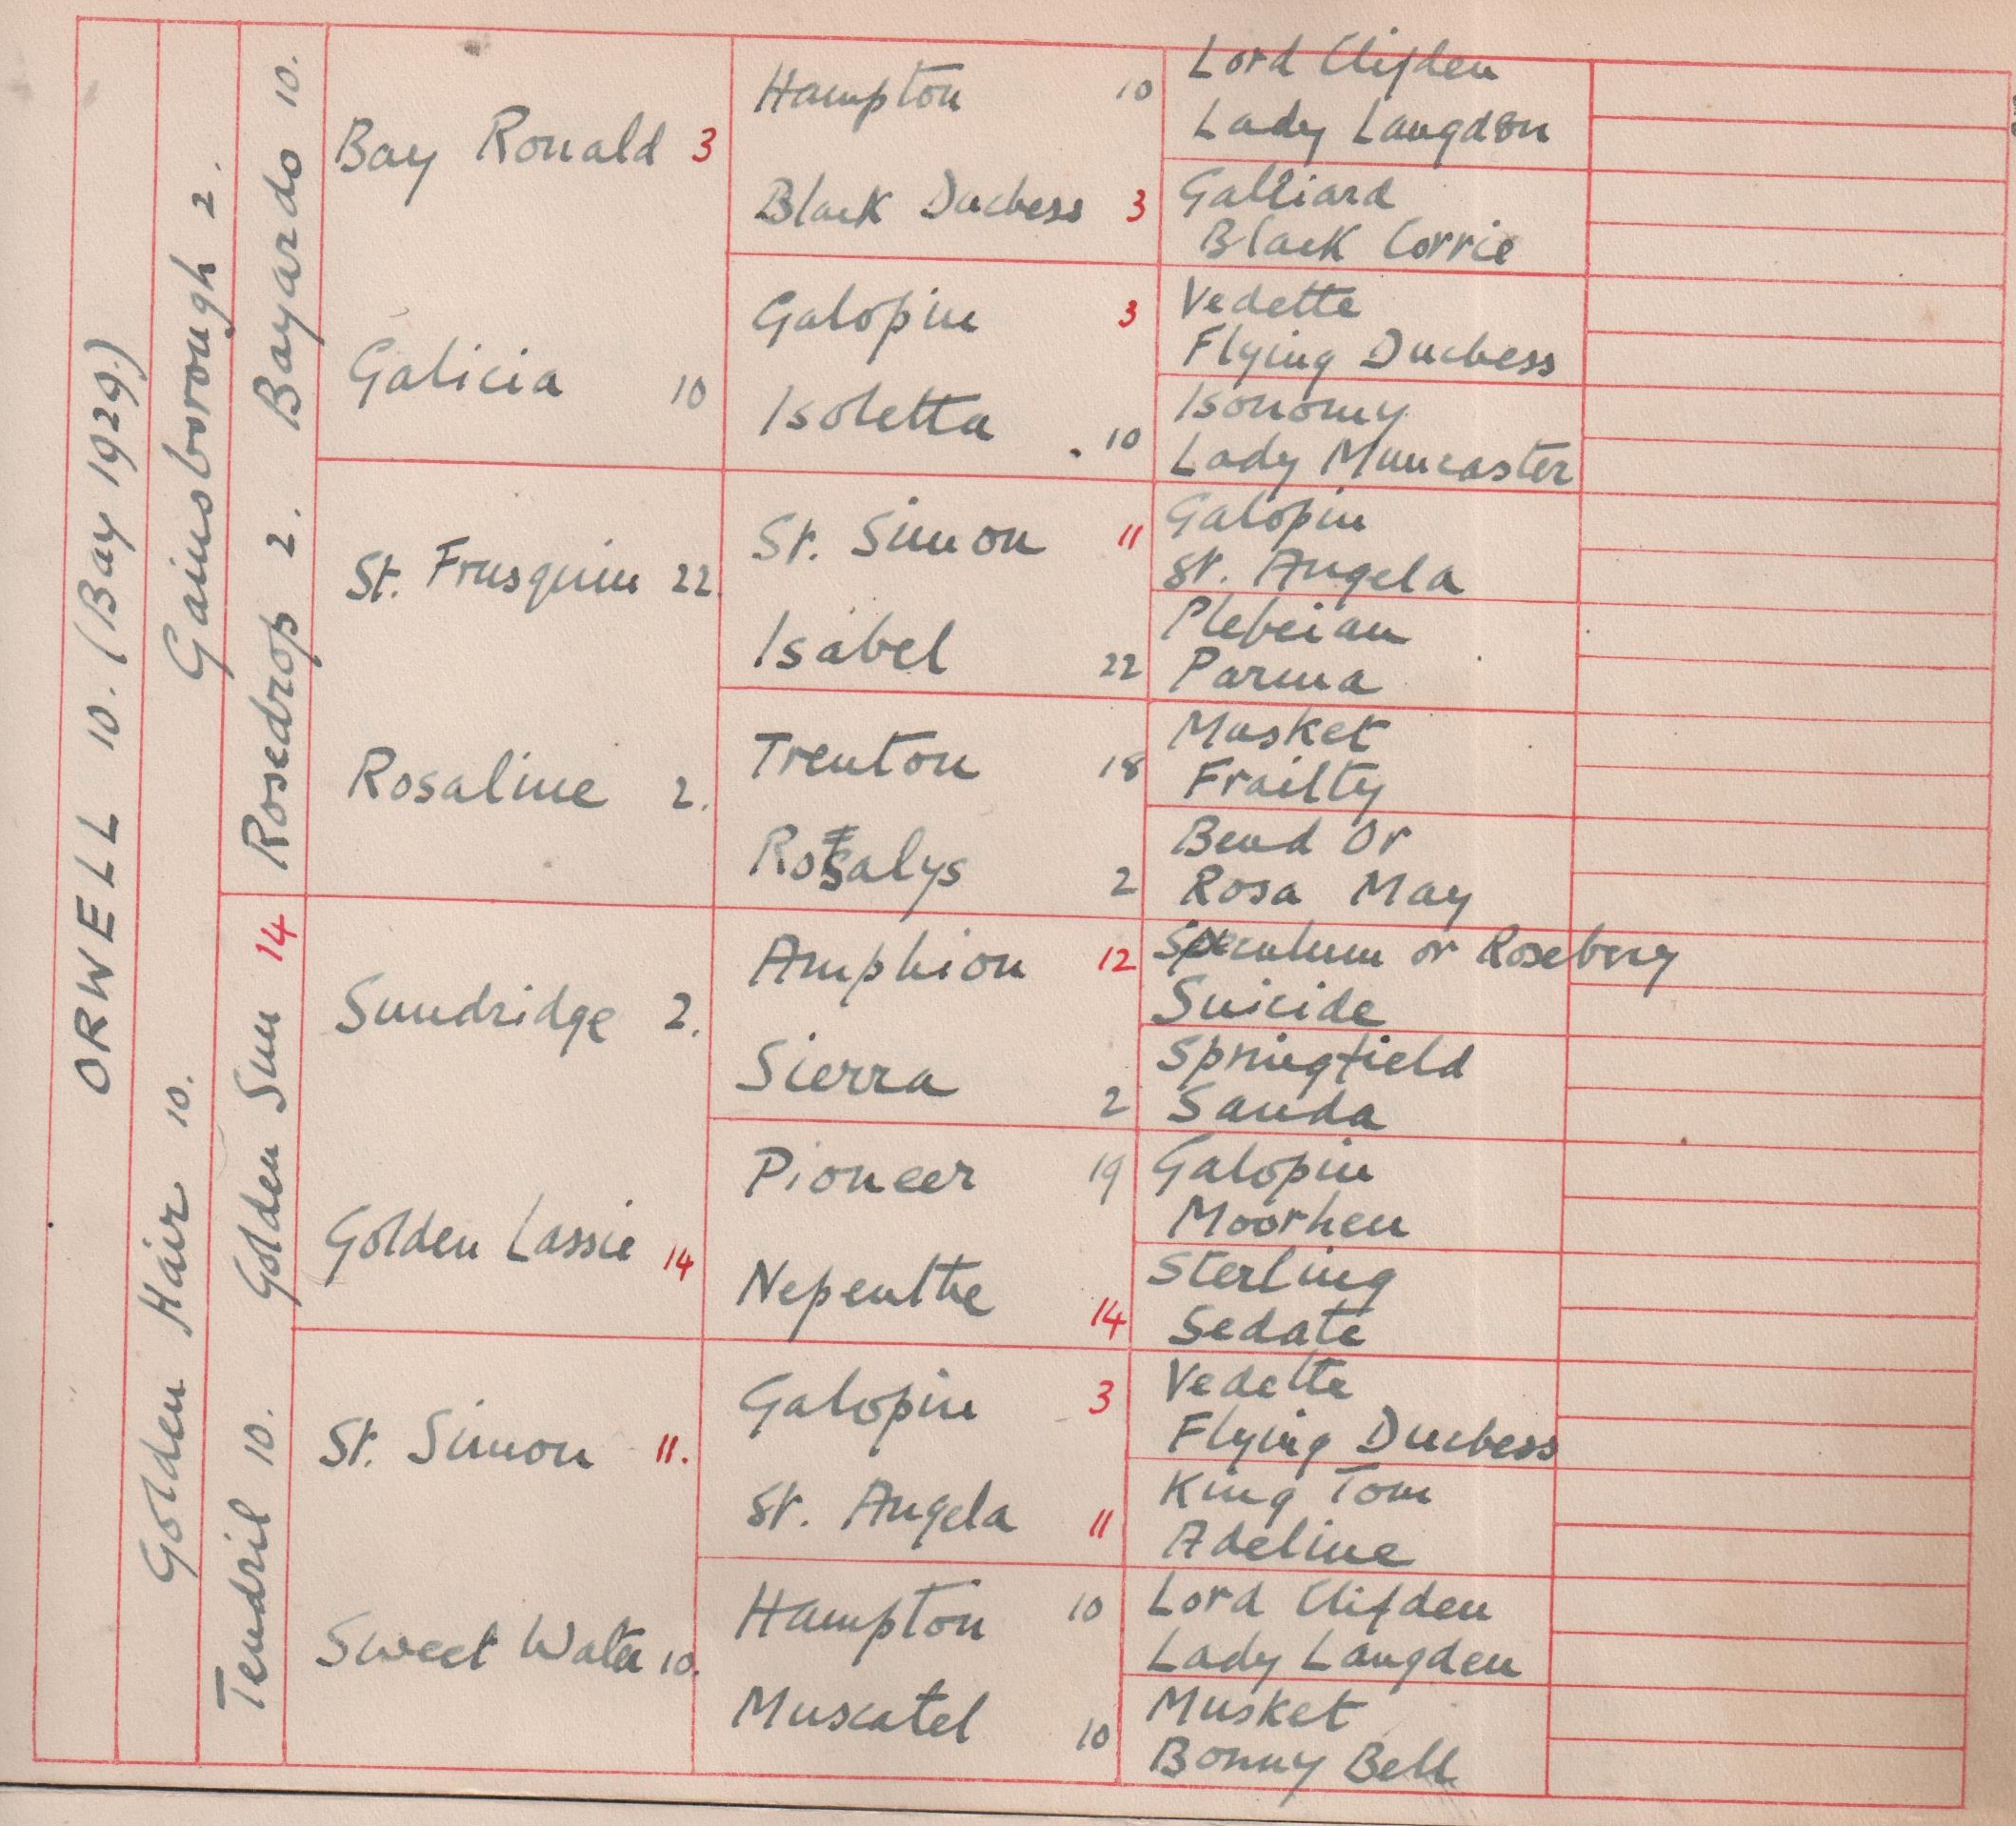 ORWELL 10. (Bay 1929.)
Gainsborough 2.
Golden Hair 10.
Bayardo 10.
Rosedrop 2.
Golden Sun 14
Tendril 10.
Bay Ronald 3
Galicia 10
St. Frusquin 22.
Rosaline 2.
Sundridge 2.
Golden Lassie 14
St. Simon 11.
Sweet Water 10.
Hampton 10
Black Duchess 3
Galopin 3
Isoletta . 10
St. Simon 11
Isabel 22
Trenton 18
Rosalys 2
Amphion 12
Sierra 2
Pioneer 19
Nepenthe 14
Galopin 3
St. Angela 11
Hampton 10
Muscatel 10
Lord Clifden
Lady Langdon
Galliard
Black Corrie
Vedette
Flying Duchess
Isonomy
Lady Muncaster
Galopin
St. Angela
Plebeian
Parma
Musket
Frailty
Bend Or
Rosa May
Speculum or Rosebery
Suicide
Springfield
Sanda
Galopin
Moorhen
Sterling
Sedate
Vedette
Flying Duchess
King Tom
Adeline
Lord Clifden
Lady Langden
Musket
Bonny Bell